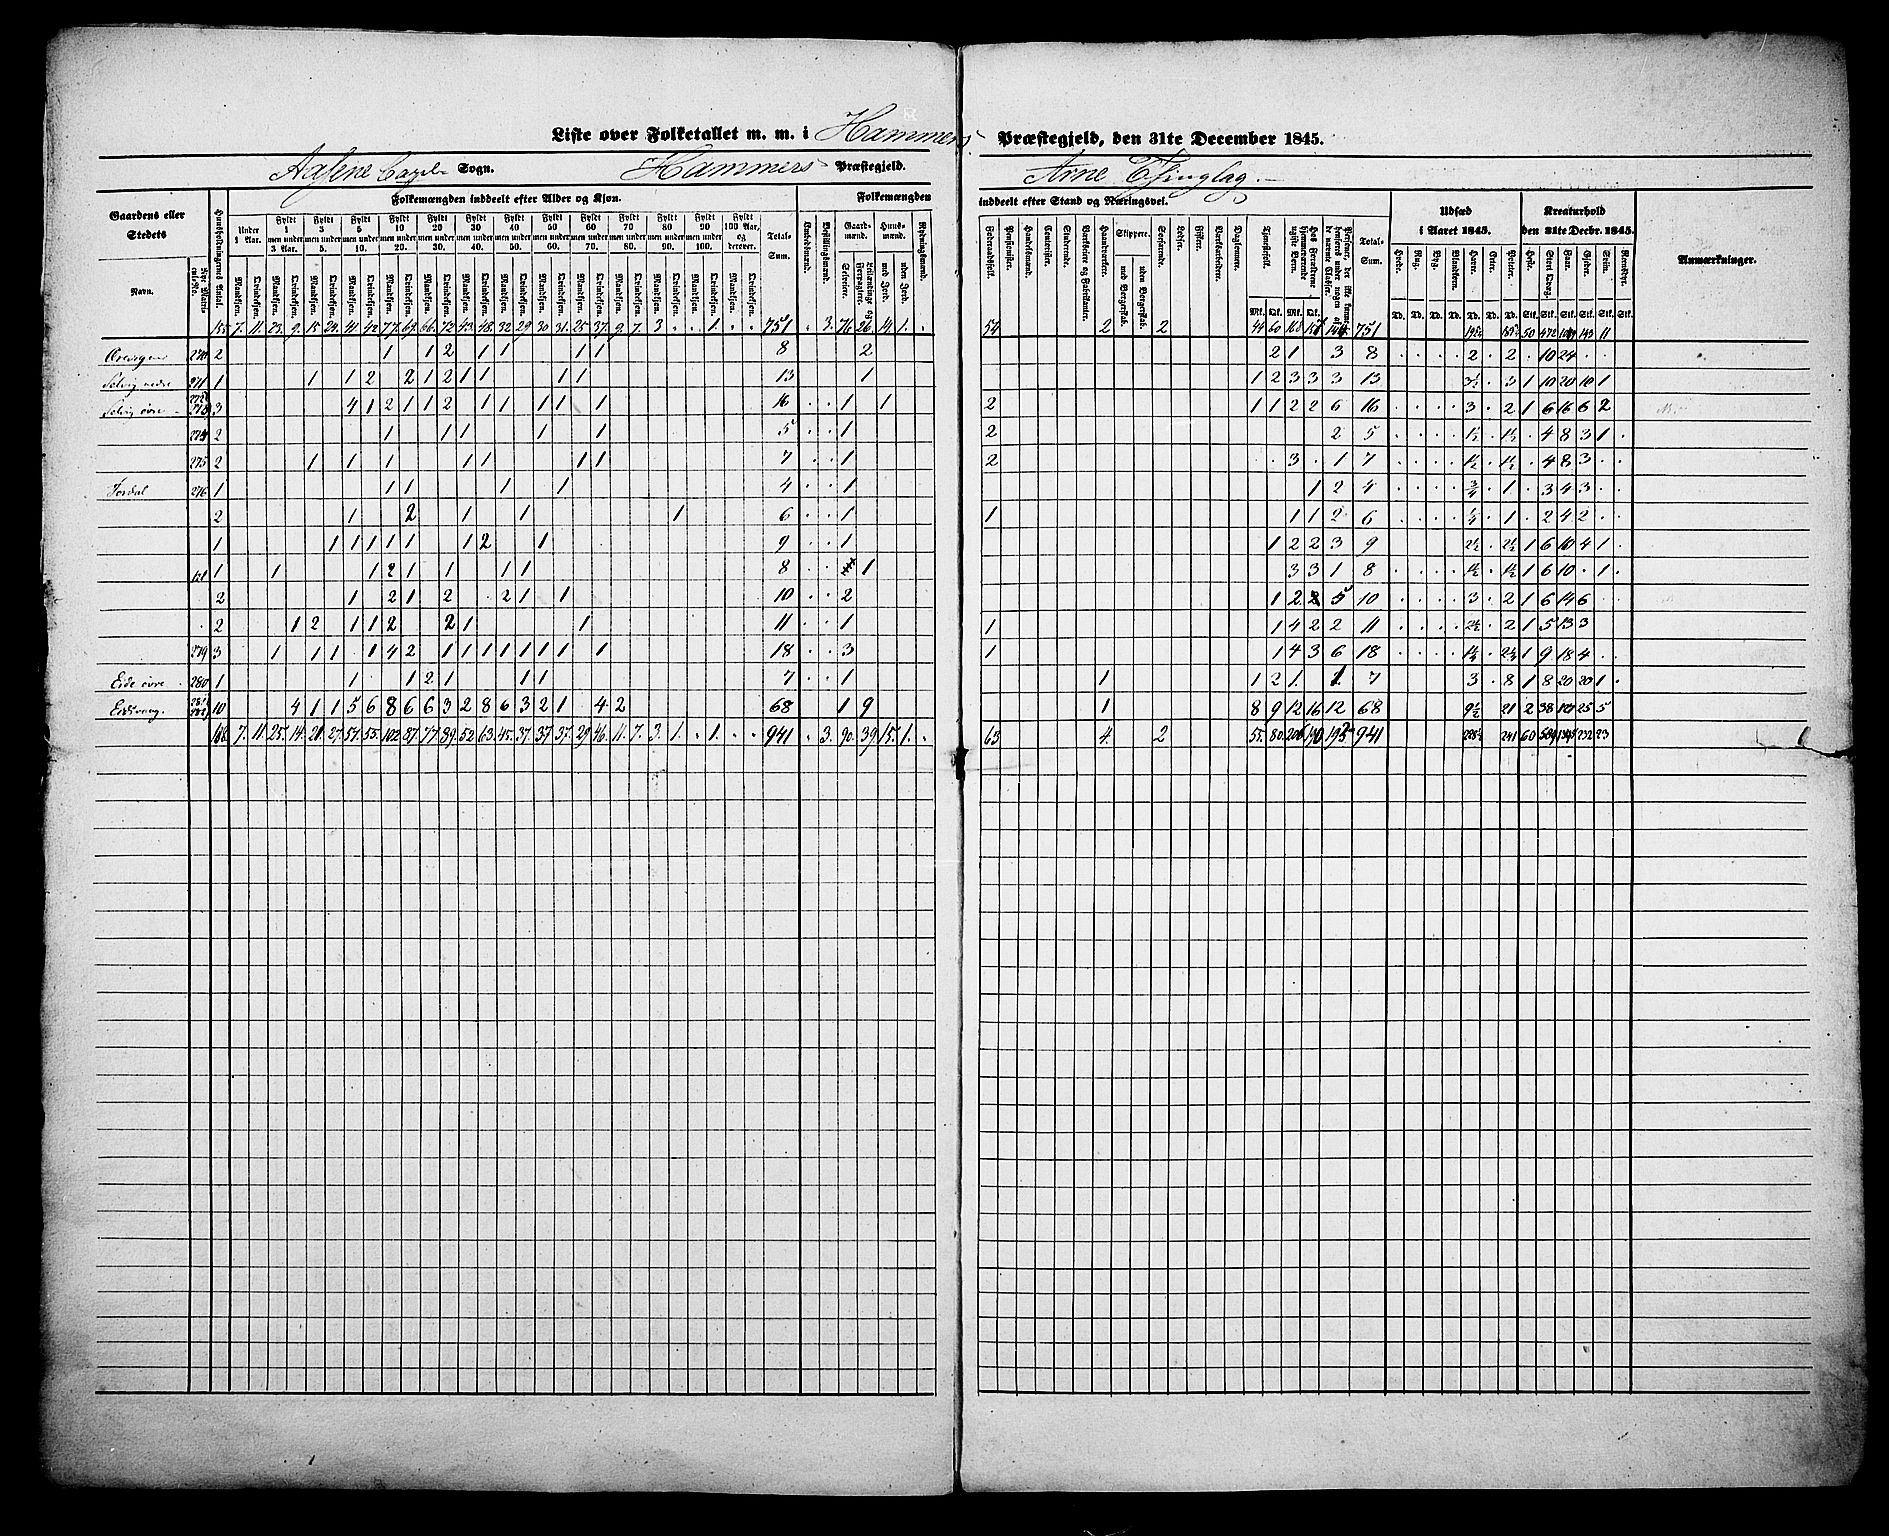 Liste over Folketallet m. m. i Hammers Præstegjeld, den 31te December 1845.
Aasene Capel Sogn. Hammers Præstegjeld. Arne Thinglag.
Gaardens eller Stedets Navn.
Nye Matrikul No.
Huusholdningernes Antal.
Folkemængden inddeelt efter Alder og Kjøn.
Under 1 Aar.
Fyldt 1 men under 3 Aar.
Fyldt 3 men under 5.
Fyldt 5 men under 10.
Fyldt 10 men under 20.
Fyldt 20 men under 30.
Fyldt 30 men under 40.
Fyldt 40 men under 50.
Fyldt 50 men under 60.
Fyldt 60 men under 70.
Fyldt 70 men under 80.
Fyldt 80 men under 90.
Fyldt 90 men under 100.
Fyldt 100 Aar, og derover.
Mandkjøn. Qvindekjøn.
Total-Sum.
Folkemængden inddeelt efter Stand og Næringsvei.
Embedsmænd.
Bestillingsmænd.
Gaardmænd.
Selveiere.
Leilændinge og Forpagtere.
Huusmænd.
med Jord.
uden Jord.
Føderaadsfolk.
Pensionister.
Handelsmænd.
Contorister.
Studerende.
Værkseiere og Fabrikanter.
Haandværkere.
Skippere.
med Borgerskab.
uden Borgerskab.
Søefarende.
Lodser.
Fiskere.
Værkarbeidere.
Dagleiere.
Tjenestefolk.
Hos Forældrene hjemmeværende ugifte Børn.
Personer, der ikke kunne henføres under nogen af de nævnte Classer.
Total-Sum.
Udsæd i Aaret 1845.
Hvede. Rug. Byg. Blandkorn. Havre. Erter. Poteter.
Kreaturhold den 31te Decbr. 1845.
Heste. Stort Qvæg. Faar. Gjeder. Sviin. Rensdyr.
Anmærkninger.
155. 7. 11. 23. 9. 15 24. 41. 42 77. 69. 66. 72 43. 48. 32 29. 30. 31. 25. 37. 9. 7. 3 " " 1. " " 751 " 3. 76 26. 14 1. " 54 2 2 44 60 168 751
270 2 1 1 2 1 1 1 1 8 2 2 1 3 8 2 2 10 24
Selvig nedre 271 1 1 1 2 2 1 2 1 1 1 1 13 1 1 2 3 3 3 13 3½ 3 1 10 20 10 1
Selvig øvre 3 4 1 2 1 1 2 1 1 1 1 1 16 1 1 2 1 1 2 2 6 16 3 2 1 6 16 6 2
274 2 1 1 1 1 1 5 1 2 2 5 1½ 1½ 4 8 3 1
275 2 1 1 1 1 1 1 1 7 1 2 3 1 7 1½ 1½ 4 8 3
276 1 1 1 1 1 4 1 1 2 4 ¾ 1 3 4 3
2 1 2 1 1 1 6 1 1 1 1 2 6 1 2 4 2
1 1 1 1 1 1 1 2 1 9 1 1 2 2 3 9 2½ 2½ 1 6 10 4 1
1 1 1 2 1 1 1 1 8 1 3 3 1 8 1½ 1½ 1 6 10 1
2 1 2 1 2 2 1 1 10 2 1 2 2 5 10 3 2 1 6 14 6
2 1 2 1 1 2 2 1 1 11 1 1 1 4 2 2 11 2½ 2 1 5 13 3
279 3 1 1 1 1 4 2 1 1 1 1 1 1 1 1 18 3 1 1 4 3 6 18 1 9 18 4
Eide øvre 280 1 1 1 2 1 1 1 7 1 1 1 2 1 1 7 3 8 1 8 20 20 1
Eidsvaag. 10 4 1 1 5 6 8 6 6 3 2 8 6 3 2 1 4 2 68 1 9 1 8 9 12 16 12 68 9½ 21 2 38 25 5
7. 11. 25. 14. 20. 27. 54. 55. 102 87. 77. 89. 52 63. 45. 37. 37 37. 29 46. 11. 7. 3. 1. " 1. " " 941 " 3. 90. 39 15. 1. " 63 4. 2 55. 80. 206 190 941 241 60 232 23